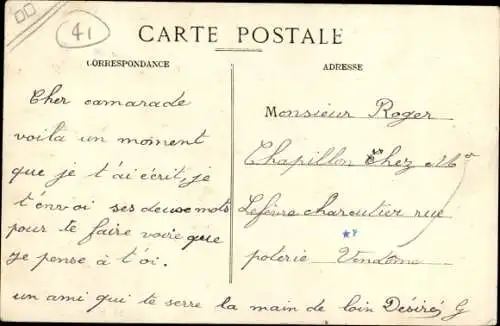 41
CARTE POSTALE
CORRESPONDANCE
ADRESSE
Cher camarade
voilà un moment
que je t'ai écrit, je
t'envoi ses deuse mots
pour te faire voire que
je pense à t'oi.
un ami qui te serre la main de loin Désiré G
Monsieur Roger
Chapillon chez Mr
Lefèvre charcutier rue
poterie Vendome